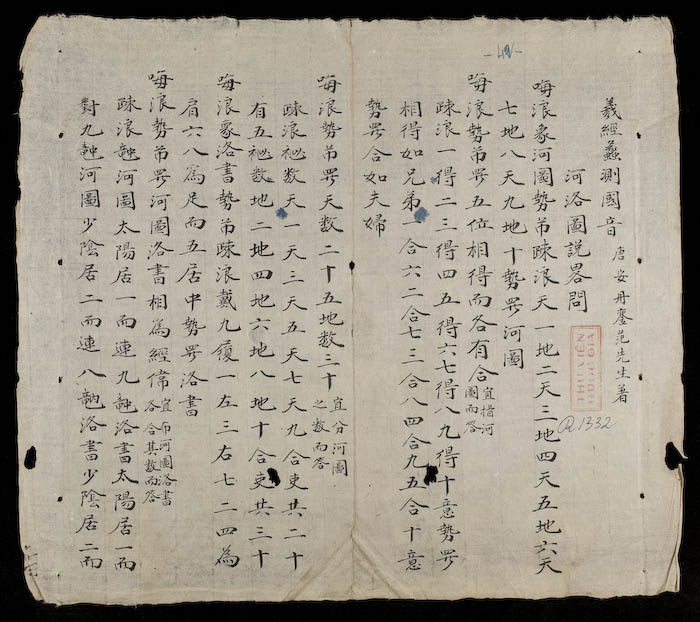 羲經蠡測國音 唐安丹鑾范先生著
河洛圖說畧問
㖫浪象河圖勢芇疎浪天一地二天三地四天五地六天
七地八天九地十勢畧河圖
㖫浪勢芇畧五位相得而各有合宜揩河圖而答
疎浪一得二三得四五得六七得八九得十意勢畧
相得如兄弟一合六二合七三合八四合九五合十意
勢畧合如夫婦
㖫浪勢芇畧天数二十五地数三十宜分河圖之数而答
疎浪祕数天一天三天五天七天九合吏共二十
有五祕数地二地四地六地八地十合吏共三十
㖫浪象洛書勢芇疎浪戴九履一左三右七二四為
肩六八為足而五居中勢畧洛書
㖫浪勢芇畧河圖洛書相為經緯宜布河圖洛書各合其数而答
疎浪河圖太陽居一而連九洛書太陽居一而
對九河圖少陰居二而連八洛書少陰居二而
THƯ VIỆN
QUỐC GIA
R.1332